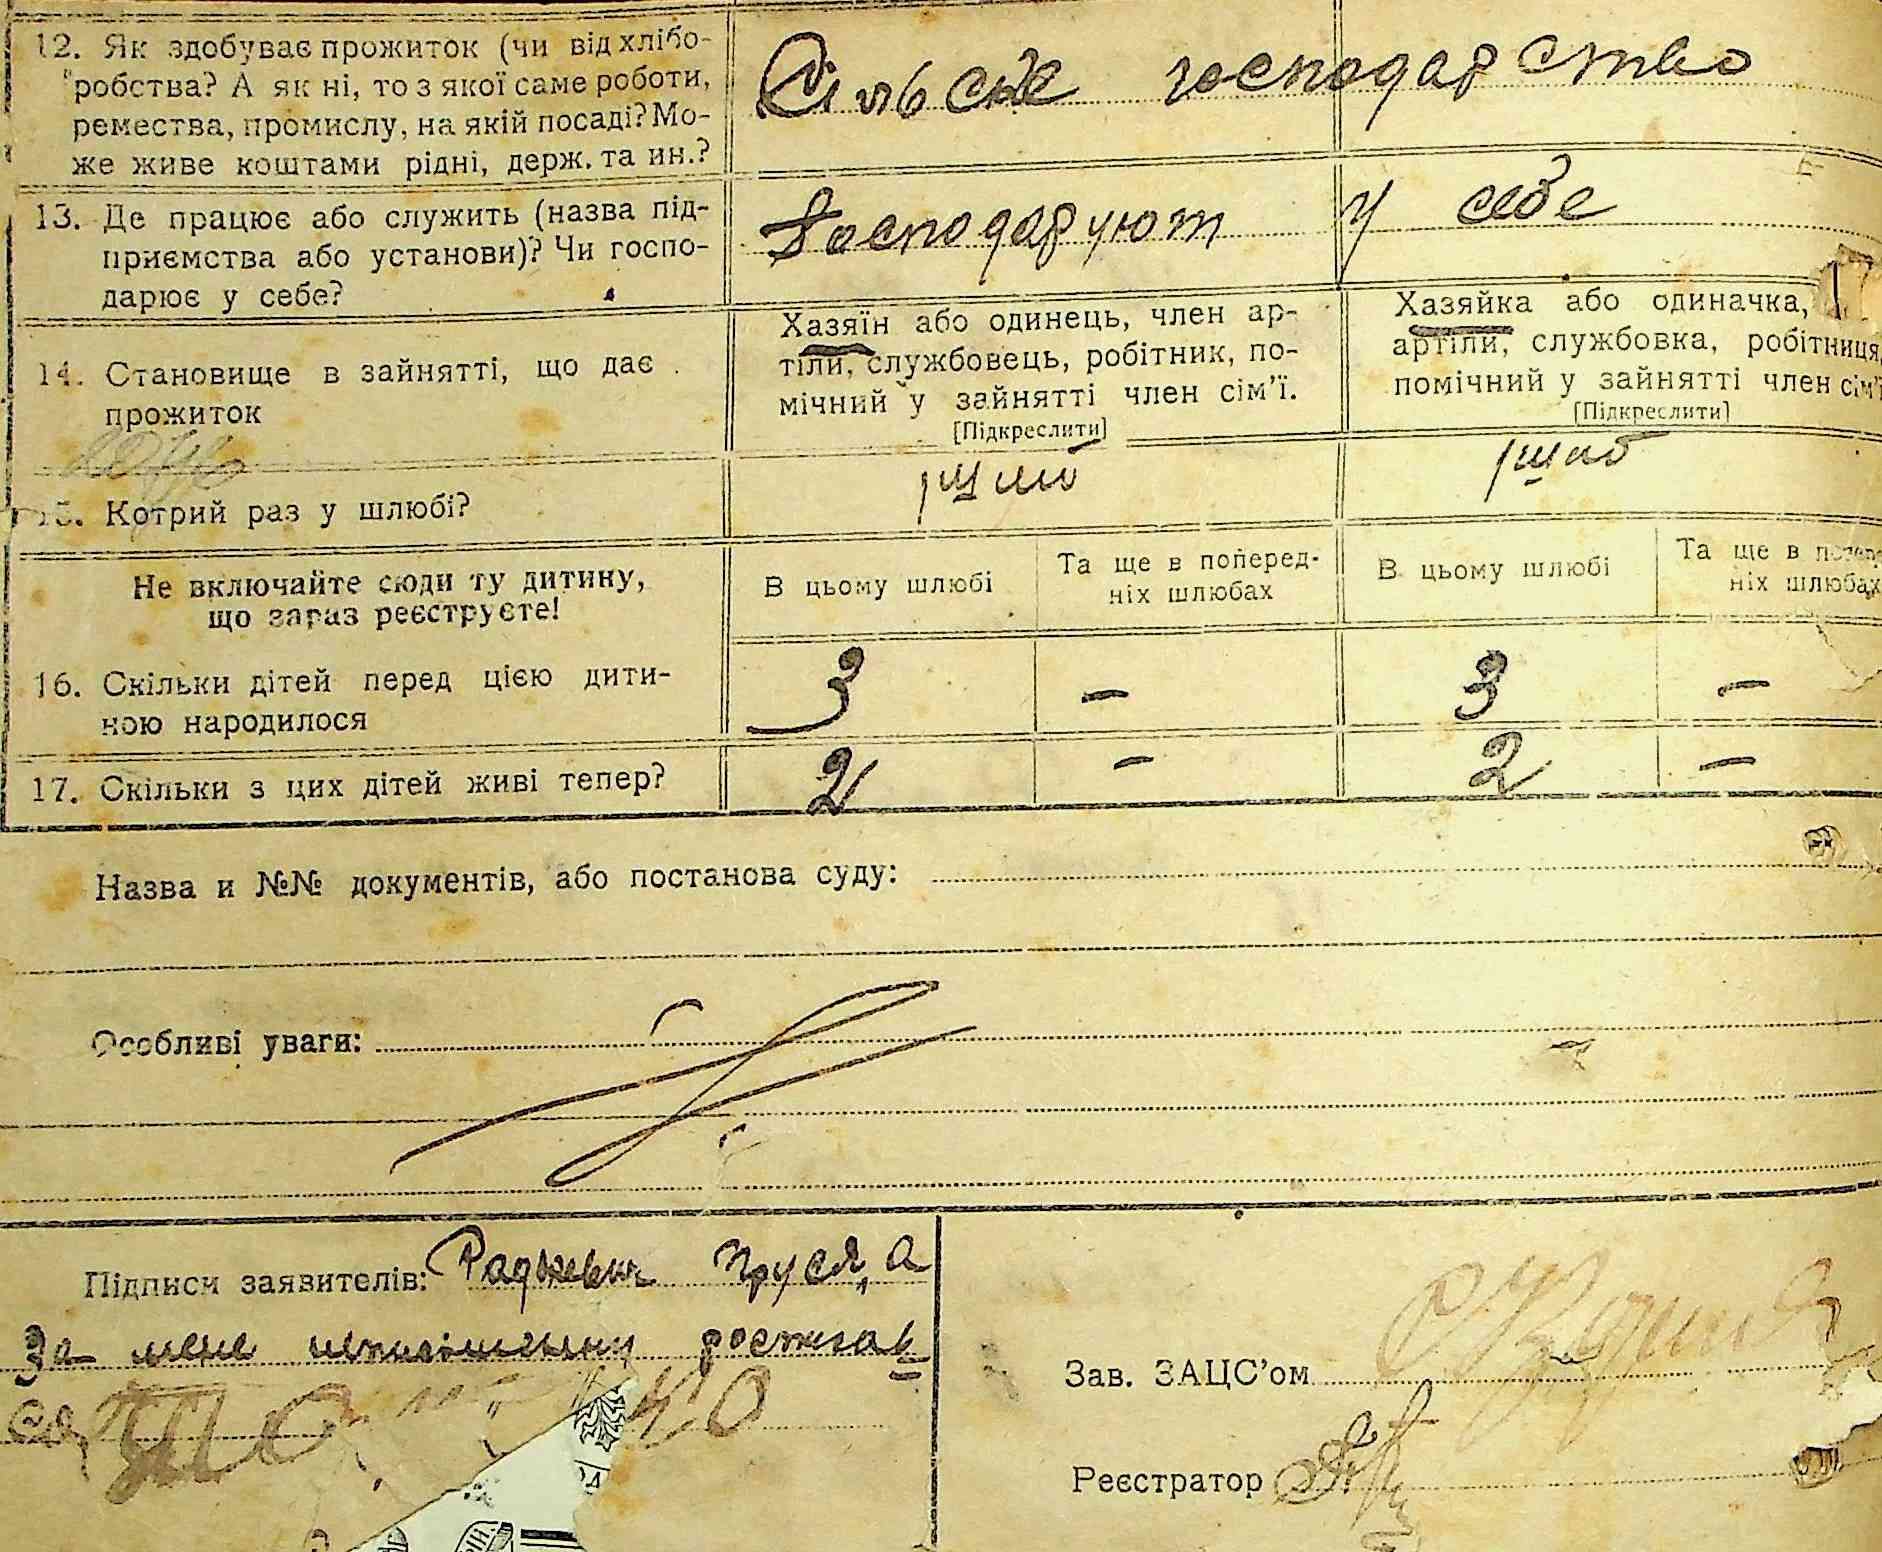 12. Як здобуває прожиток (чи від хлібо-
робства? А як ні, то з якої саме роботи,
ремества, промислу, на якій посаді? Мо-
же живе коштами рідні, держ. та ин.?
Сільське господарство
13. Де працює або служить (назва під-
приємства або установи)? Чи госпо-
дарює у себе?
Господарюют у себе
14. Становище в зайнятті, що дає
прожиток
Хазяїн або одинець, член ар-
тіли, службовець, робітник, по-
мічний у зайнятті член сім'ї.
[Підкреслити]
Хазяйка або одиначка,
артіли, службовка, робітниця,
помічний у зайнятті член сім'ї
[Підкреслити]
15. Котрий раз у шлюбі?
Не включайте сюди ту дитину,
що зараз реєструєте!
В цьому шлюбі
Та ще в поперед-
ніх шлюбах
В цьому шлюбі
Та ще в поперед-
ніх шлюбах
16. Скільки дітей перед цією дити-
ною народилося
3 - 3 -
17. Скільки з цих дітей живі тепер?
2 - 2 -
Назва и №№ документів, або постанова суду:
Особливі уваги:
Підписи заявителів: а
За мене
Зав. ЗАЦС'ом
Реєстратор